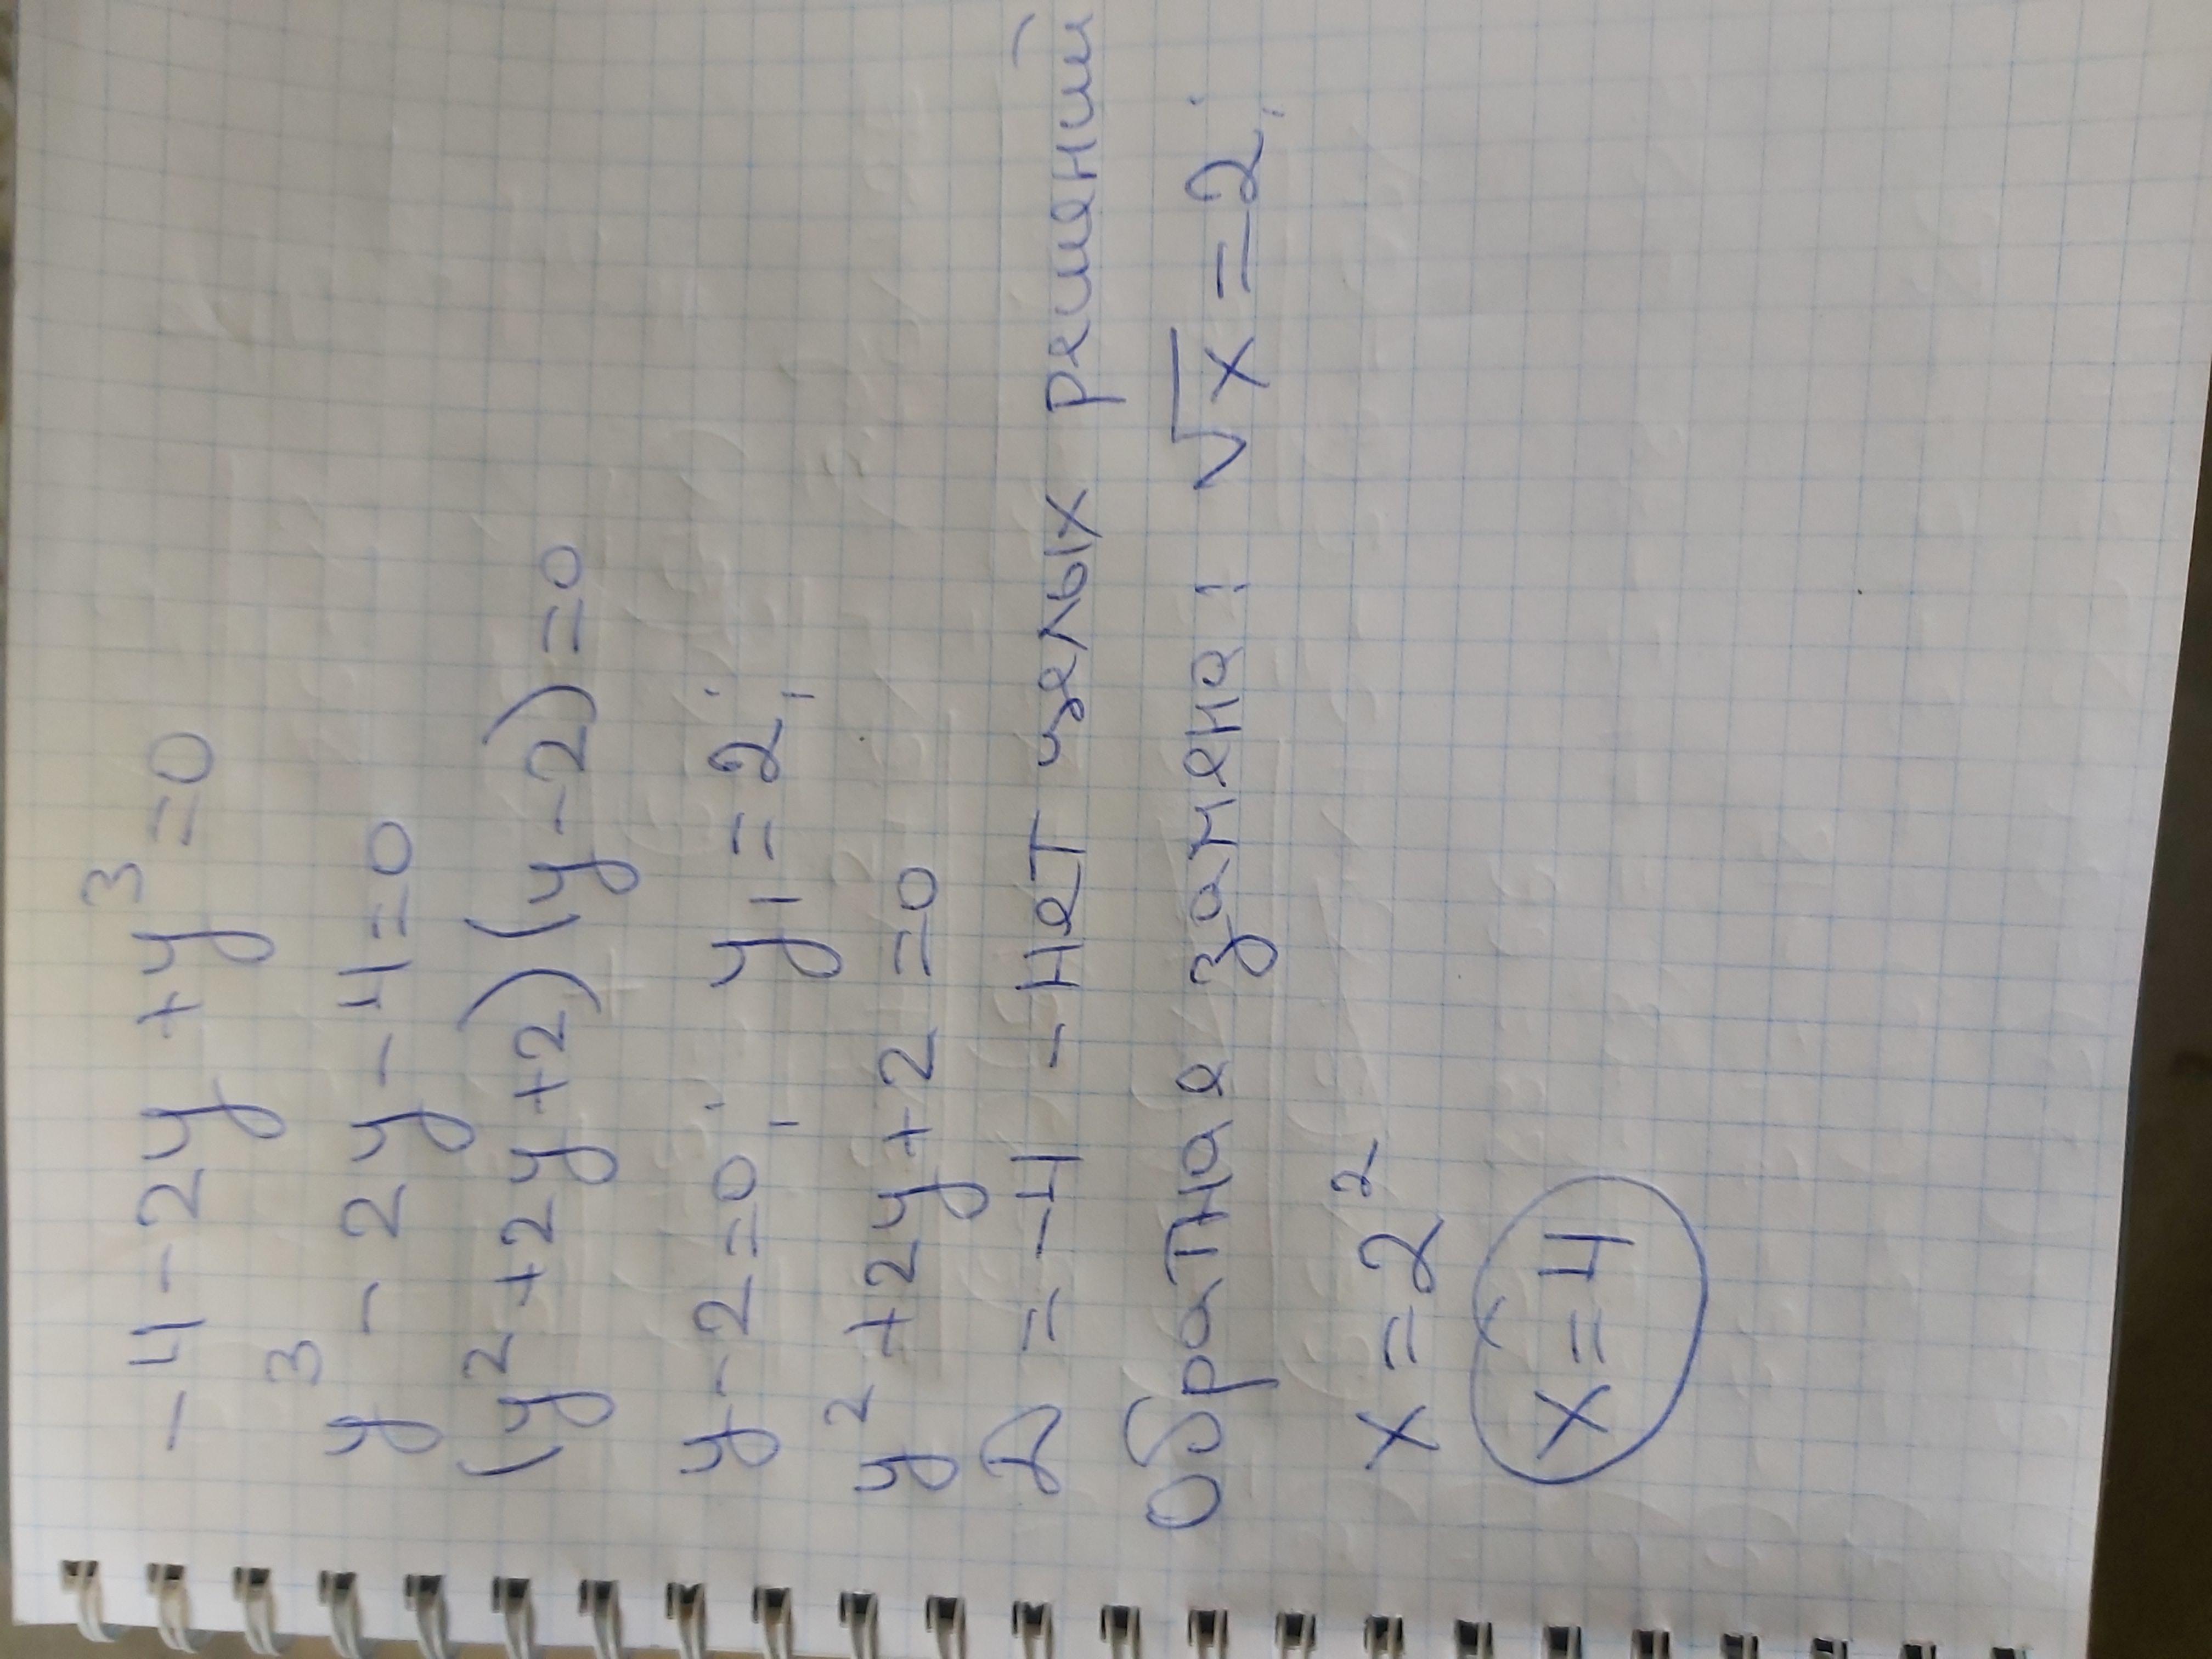 -4-2y+y³=0
y³-2y-4=0
(y²+2y+2)(y-2)=0
y-2=0; y₁=2;
y²+2y+2=0
D=-4 - нет целых решений
Обратная замена: √x=2;
x=2²
x=4